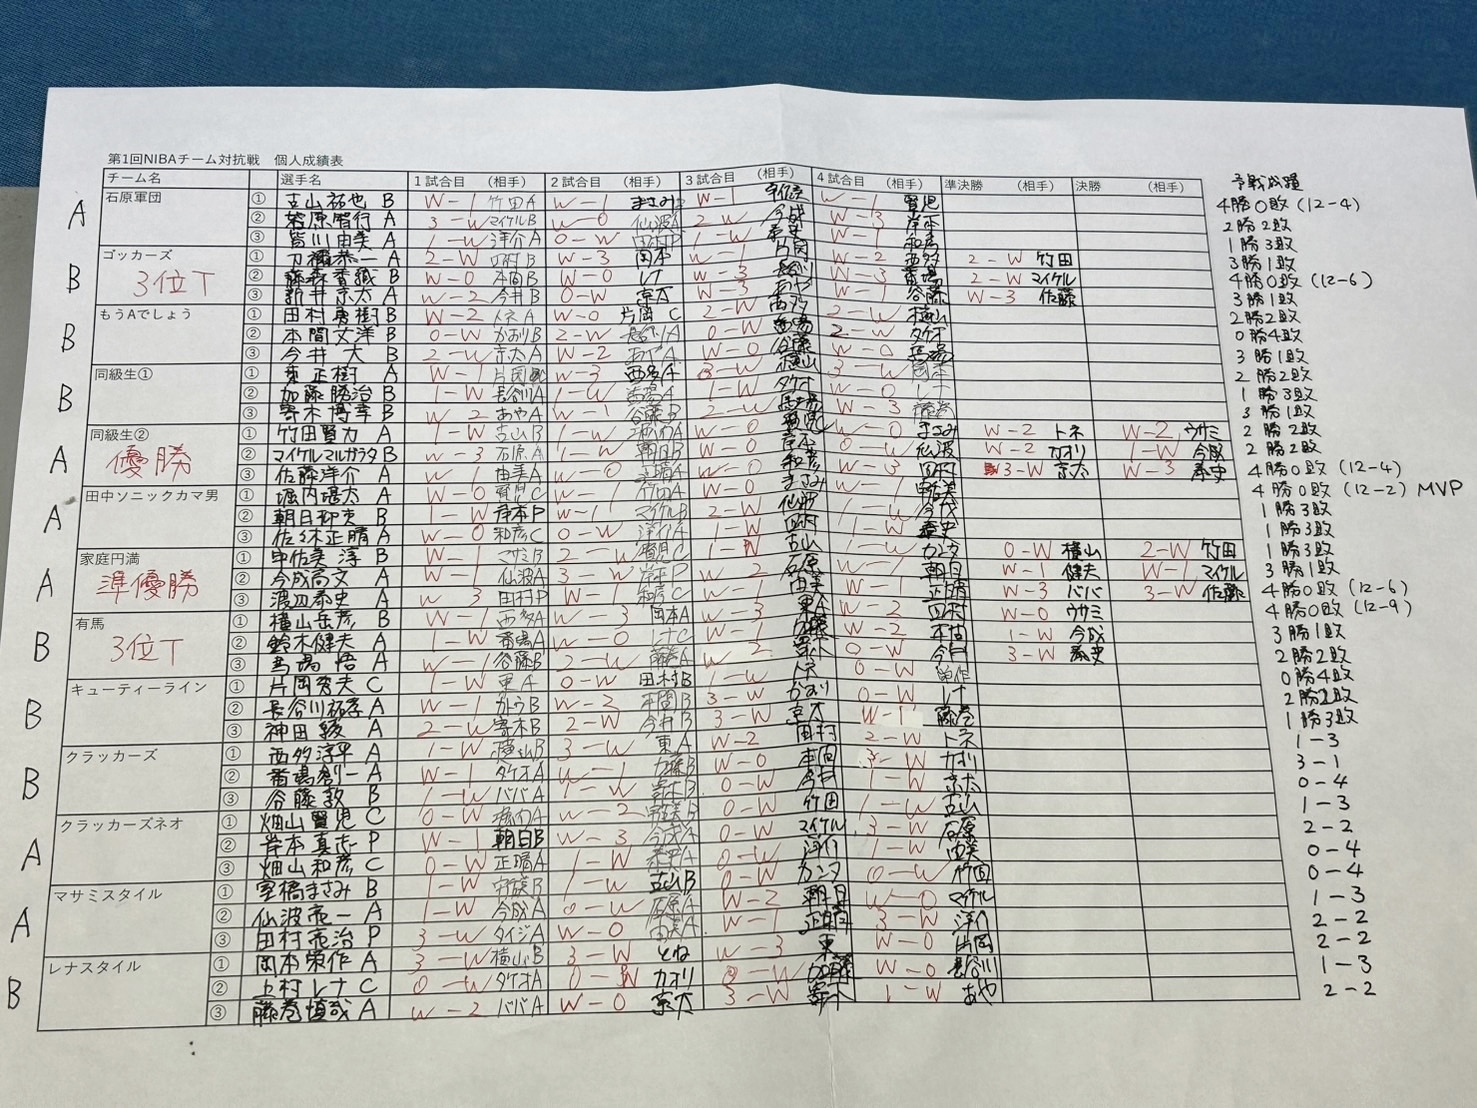 第1回NIBAチーム対抗戦　個人成績表
チーム名 選手名 1試合目 （相手） 2試合目 （相手） 3試合目 （相手） 4試合目 （相手） 準決勝 （相手） 決勝 （相手） 予戦成績
A 石原軍団 ① 古山祐也 B W-1 竹田A W-1 まさみ W-1 W-1 賢児 4勝0敗(12-4)
② 石原智行 A 3-W マイケルB W-0 仙波A 2-W 今成 W-3 岸本 2勝2敗
③ 皆川由美 A 1-W 洋介A 0-W 田村P 1-W W-1 和彦 1勝3敗
B ゴッカーズ ① 刀禰恭一 A 2-W 田村B W-3 岡本 W-1 片岡 W-2 西多 2-W 竹田 3勝1敗
3位T ② 藤森香織 B W-0 本間B W-0 レナ W-3 長谷川 W-3 番場 2-W マイケル 4勝0敗(12-6)
③ 新井京太 A W-2 今井B 0-W W-3 W-1 谷藤 W-3 佐藤 3勝1敗
B もうAでしょう ① 田村勇樹 B W-2 トネA W-0 片岡C 2-W 西多 2-W 横山 2勝2敗
② 本間丈洋 B 0-W かおりB 2-W 長谷川A 0-W 番場 2-W タケオ 0勝4敗
③ 今井 大 B 2-W 京太A W-2 あやA W-0 谷藤 W-0 馬場 3勝1敗
B 同級生① ① 東 正樹 A W-1 片岡 W-3 西多A 3-W 横山 3-W 岡本 2勝2敗
② 加藤勝治 B 1-W 長谷川A 1-W 番場A 1-W タケオ W-0 レナ 1勝3敗
③ 寄木博幸 B W-2 あやA W-1 谷藤B 2-W 馬場 W-3 藤巻 3勝1敗
A 同級生② ① 竹田賢力 A 1-W 古山B 1-W 堀内A W-0 賢児 W-0 まさみ W-2 トネ W-2 ウサミ 2勝2敗
優勝 ② マイケルマルガラタ B W-3 石原A 1-W 朝日B W-0 岸本 0-W 仙波 W-2 カオリ 1-W 今成 2勝2敗
③ 佐藤洋介 A W-1 由美A W-0 正晴A W-0 和彦 W-3 田村 3-W 京太 W-3 泰史 4勝0敗(12-4)
A 田中ソニックカマ男 ① 堀内堪太 A W-0 賢児C W-1 竹田A W-1 まさみ W-1 宇佐美 4勝0敗(12-2) MVP
② 朝日卯吏 B 1-W 岸本P W-1 マイケルB 2-W 仙波 1-W 今成 1勝3敗
③ 佐々木正晴 A W-0 和彦C 0-W 洋介A 1-W 田村 1-W 泰史 1勝3敗
A 家庭円満 ① 宇佐美 淳 B W-1 マサミB 2-W 賢児C 1-W 古山 1-W カンタ 0-W 横山 2-W 竹田 1勝3敗
準優勝 ② 今成高文 A W-1 仙波A 3-W 岸本P W-2 石原 W-1 朝日 W-1 健夫 W-1 マイケル 3勝1敗
③ 渡辺泰史 A W-3 田村P W-1 和彦C W-2 由美 W-1 正晴 W-3 ババ 3-W 佐藤 4勝0敗(12-6)
B 有馬 ① 横山岳彦 B W-1 西多A W-3 岡本A W-3 東A W-2 田村 W-0 ウサミ 4勝0敗(12-9)
3位T ② 鈴木健夫 A 1-W 番場A W-0 レナC W-1 加藤 W-2 本間 1-W 今成 3勝1敗
③ 馬場 悟 A W-1 谷藤B 2-W 藤巻A W-2 寄木 0-W 今井 3-W 泰史 2勝2敗
B キューティーライン ① 片岡秀夫 C 1-W 東A 0-W 田村B 1-W トネ 0-W 栄作 0勝4敗
② 長谷川祐孝 A W-1 かトウB W-2 本間B 3-W かおり 0-W レナ 2勝2敗
③ 神田 綾 A 2-W 寄木B 2-W 今井B 3-W 京太 W-1 藤巻 1勝3敗
B クラッカーズ ① 西多淳平 A 1-W 横山B 3-W 東A W-2 田村 2-W トネ 1-3
② 番場創一 A W-1 タケオA W-1 加藤B W-0 本間 3-W カオリ 3-1
③ 谷藤敦 B 1-W ババA 1-W 寄木B 0-W 今井 1-W 京太 0-4
A クラッカーズネオ ① 畑山賢児 C 0-W 堀内A W-2 宇佐美B 0-W 竹田 1-W 古山 1-3
② 岸本真志 P W-1 朝日B W-3 今成A 0-W マイケル 3-W 石原 2-2
③ 畑山和彦 C 0-W 正晴A 1-W 泰史A 0-W 洋介 1-W 由美 0-4
A マサミスタイル ① 室橋まさみ B 1-W 宇佐美B 1-W 古山B 0-W カンタ 0-W 竹田 0-4
② 仙波亮一 A 1-W 今成A 0-W 石原A W-2 朝日 W-0 マイケル 1-3
③ 田村亮治 P 3-W タイジA W-0 由美A W-1 正晴 3-W 洋介 2-2
B レナスタイル ① 岡本栄作 A 3-W 横山B 3-W とね W-3 東 W-0 片岡 2-2
② 上村レナ C 0-W タケオA 0-W カオリ 0-W 加藤 W-0 長谷川 1-3
③ 藤巻慎哉 A W-2 ババA W-0 京太 3-W 寄木 1-W あや 2-2